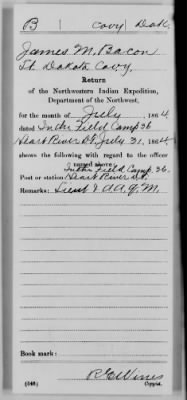 B | Cavy | Dak.
James M. Bacon
Lt. Dakota Cavy.
Return
of the Northwestern Indian Expedition,
Department of the Northwest,
for the month of July, 1864,
dated In the Field Camp 36
Heart River D.T. July 31, 1864,
shows the following with regard to the officer
named above:
In the Field Camp 36.
Post or station Heart River D.T.
Remarks: Lieut & A.A.Q.M.
Book mark:
R E Wines
(546) Copyist.